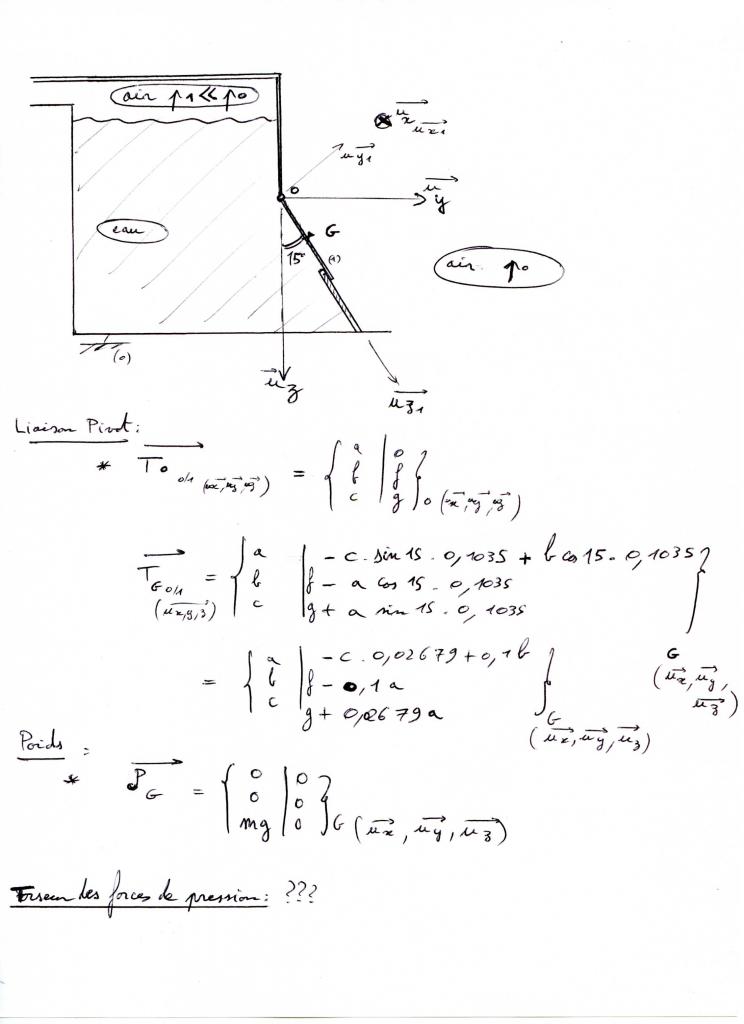 air p1 << po
ux ux1
uy1
o
uy
eau
G
15°
(1)
air po
(o)
uz
uz1
Liaison Pivot:
* To 0/1 (ux, uy, uz) = { a | o
b | f
c | g } o (ux, uy, uz)
T G 0/1 (ux,y,z) = { a | - c . sin 15 . 0,1035 + b cos 15 . 0,1035
b | f - a cos 15 . 0,1035
c | g + a sin 15 . 0,1035 } G (ux, uy, uz)
= { a | - c . 0,02679 + 0,1 b
b | f - 0,1 a
c | g + 0,02679 a } G (ux, uy, uz)
Poids :
* P G = { o | o
o | o
mg | o } G (ux, uy, uz)
Torseur des forces de pression : ???